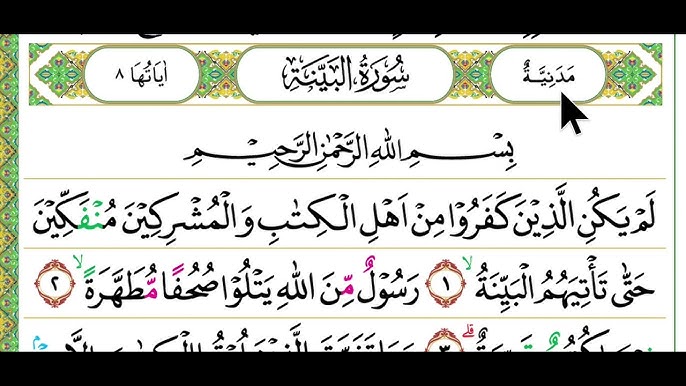 مَدَنِيَّةٌ سُورَةُ الْبَيِّنَةِ اٰيَاتُهَا ٨
بِسْمِ اللهِ الرَّحْمٰنِ الرَّحِيْمِ
لَمْ يَكُنِ الَّذِيْنَ كَفَرُوْا مِنْ اَهْلِ الْكِتٰبِ وَالْمُشْرِكِيْنَ مُنْفَكِّيْنَ
حَتّٰى تَأْتِيَهُمُ الْبَيِّنَةُ ۙ ١ رَسُوْلٌ مِّنَ اللهِ يَتْلُوْا صُحُفًا مُّطَهَّرَةً ۙ ٢